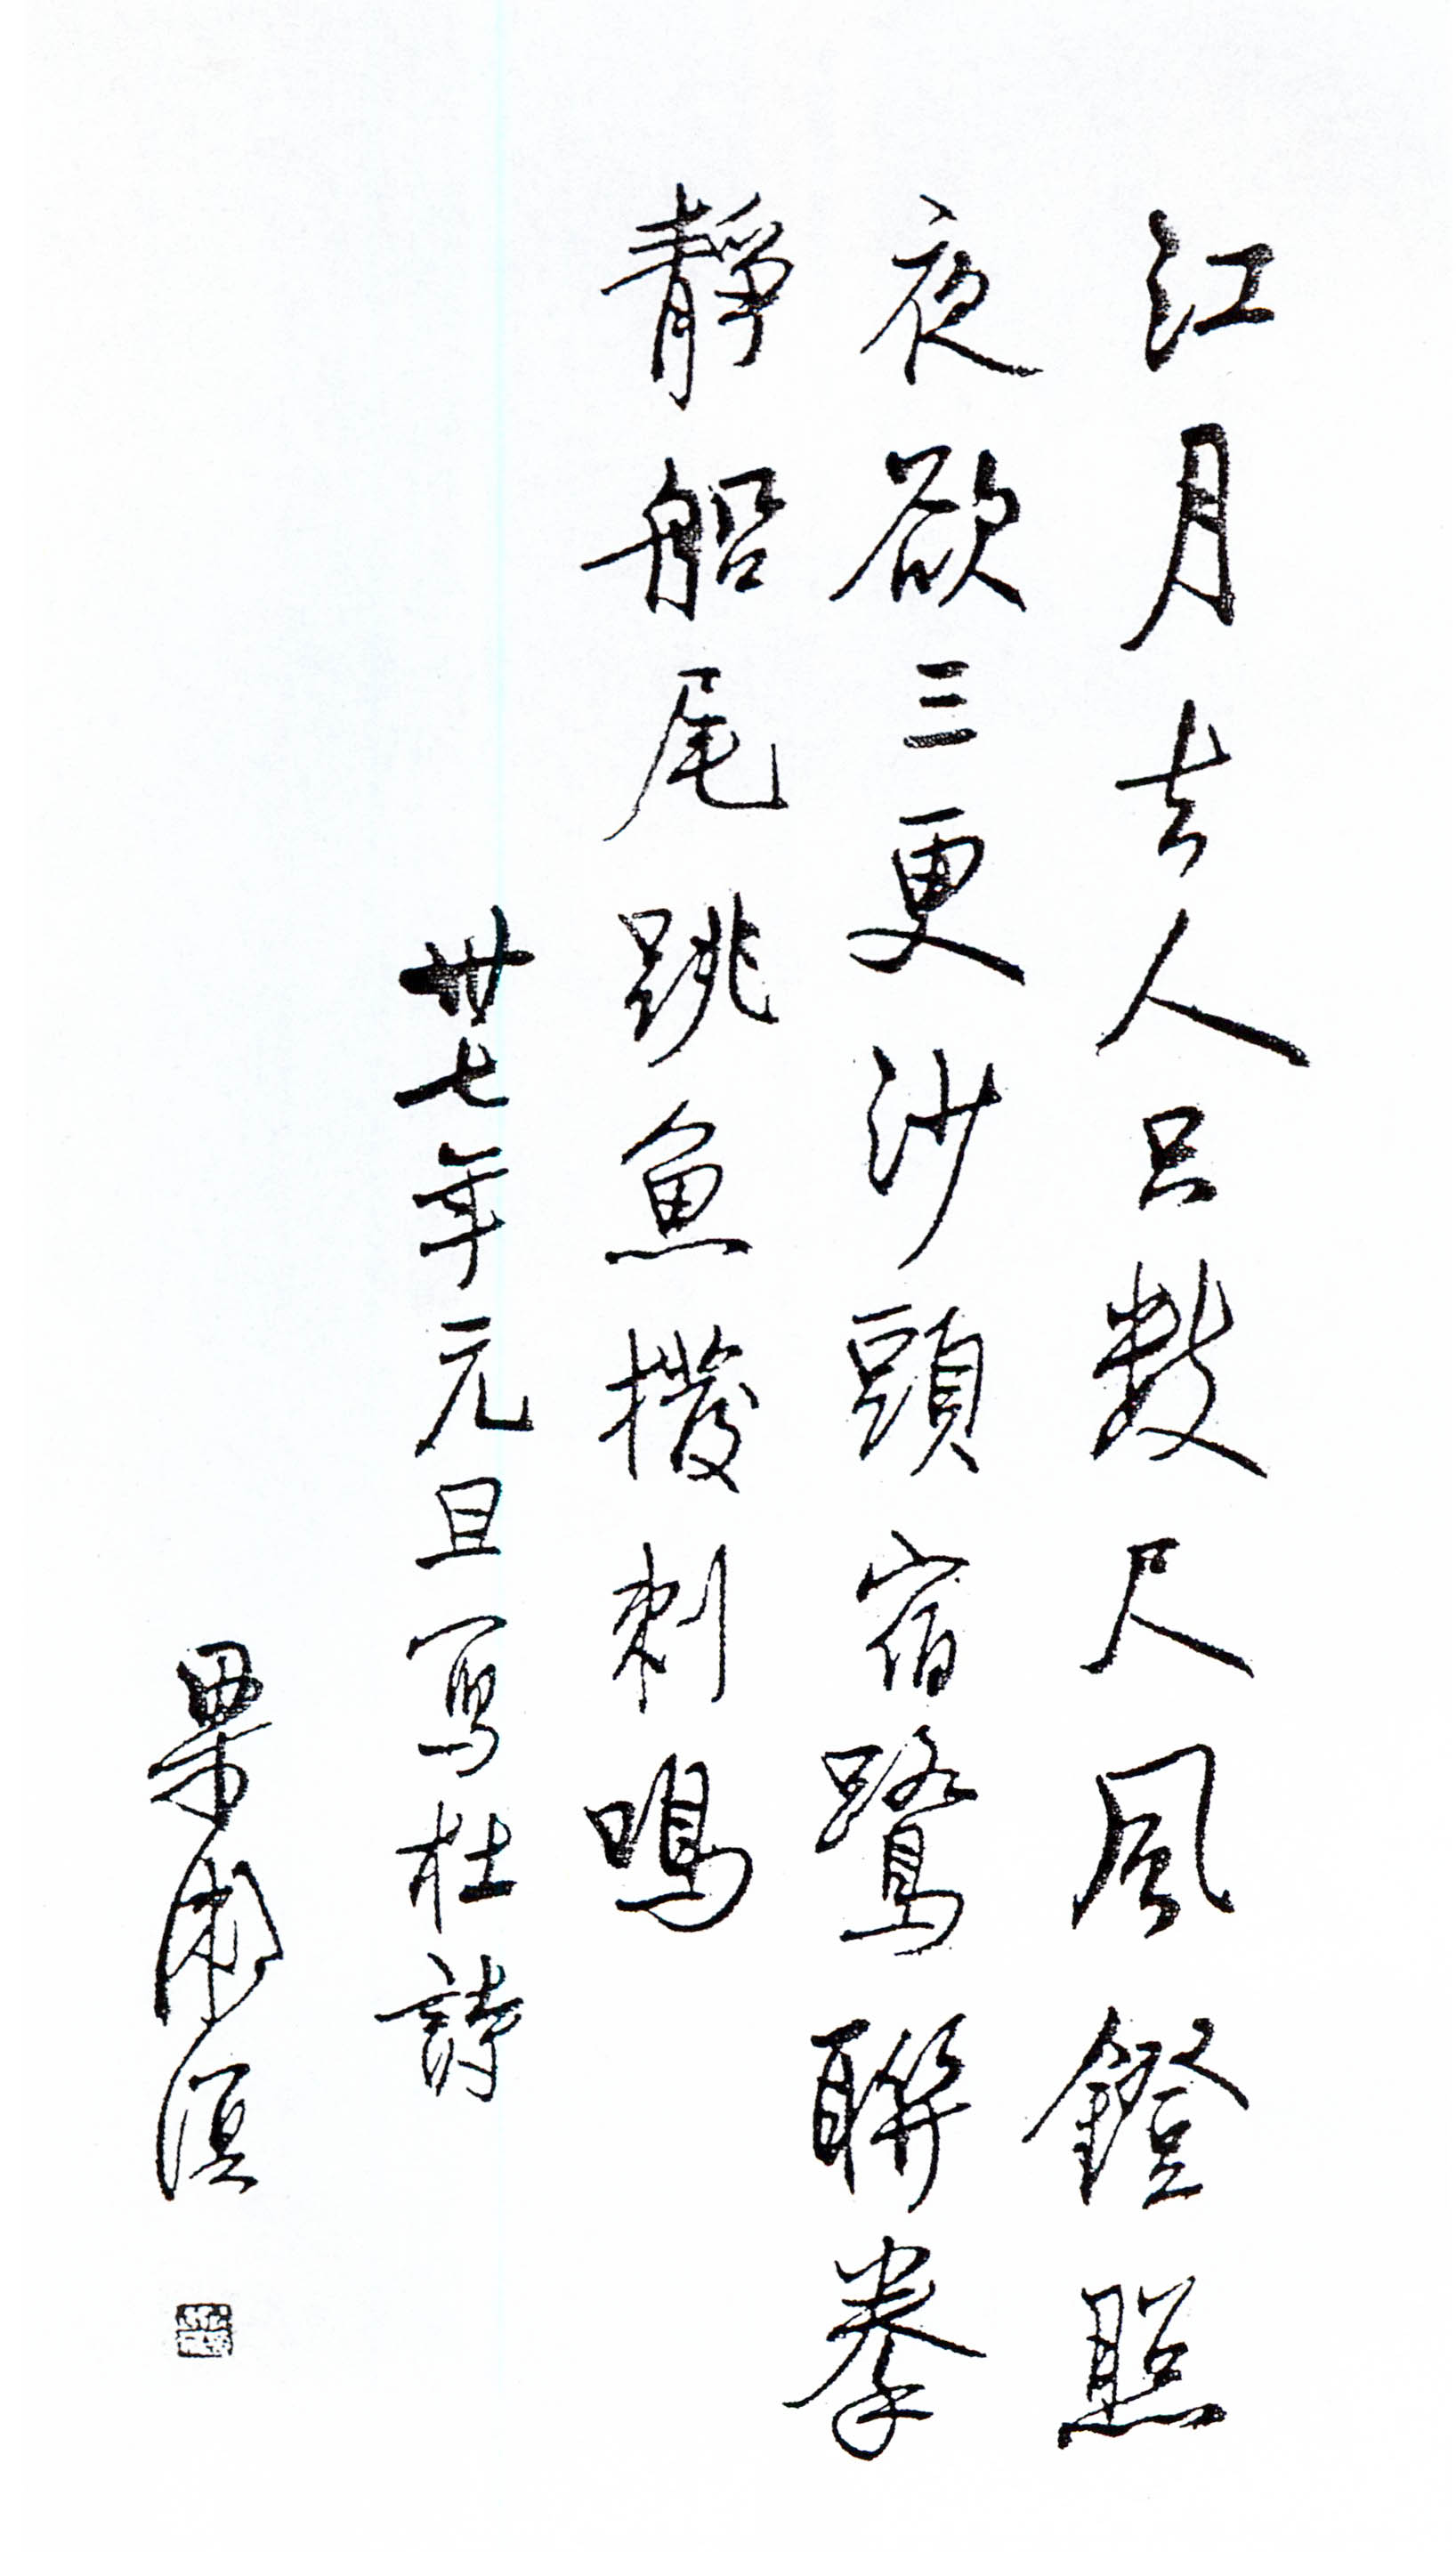 江月去人只數尺風鐙照
夜欲三更沙頭宿鷺聯拳
靜船尾跳魚撥剌鳴
卅七年元旦寫杜詩